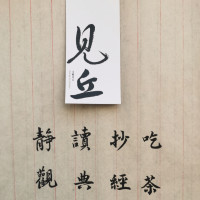 見丘
吃茶
抄經
讀典
靜觀